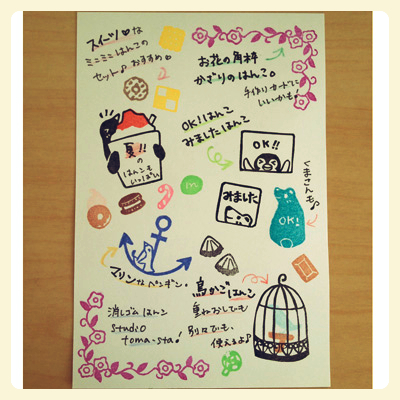 スイーツ♥な
ミニミニはんこの
セット♪おすすめ♡
お花の角枠
かざりのはんこ。
手作りカードに
いいかも!
OK!はんこ
みましたはんこ
夏!!
の
はんこも
いっぱい
OK!!
みました
くまさんも♪
OK!
m
マリンなペンギン。
鳥かごはんこ
重ねおしでも
別々でも、
使えるよ♪
消しゴムはんこ
studio
toma-sta!